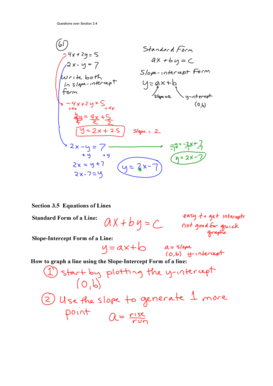 Questions over Section 3.4
61
-4x+2y=5
2x-y=7
Write both
in slope-intercept
form.
Standard Form
ax+by=c
Slope-intercept Form
y=ax+b
slope=a
y-intercept
(0,b)
-4x+2y=5
+4x +4x
2y = 4x+5
2 2 2
y=2x+2.5
slope = 2
2x-y=7
+y +y
2x = y+7
2x-7=y
y=2x-7
y=2x-7
Section 3.5 Equations of Lines
Standard Form of a Line:
ax+by=c
easy to get intercepts
not good for quick
graphs
Slope-Intercept Form of a Line:
y=ax+b
a=slope
(0,b) y-intercept
How to graph a line using the Slope-Intercept Form of a line:
1 start by plotting the y-intercept
(0,b)
2 Use the slope to generate 1 more
point a= rise
run